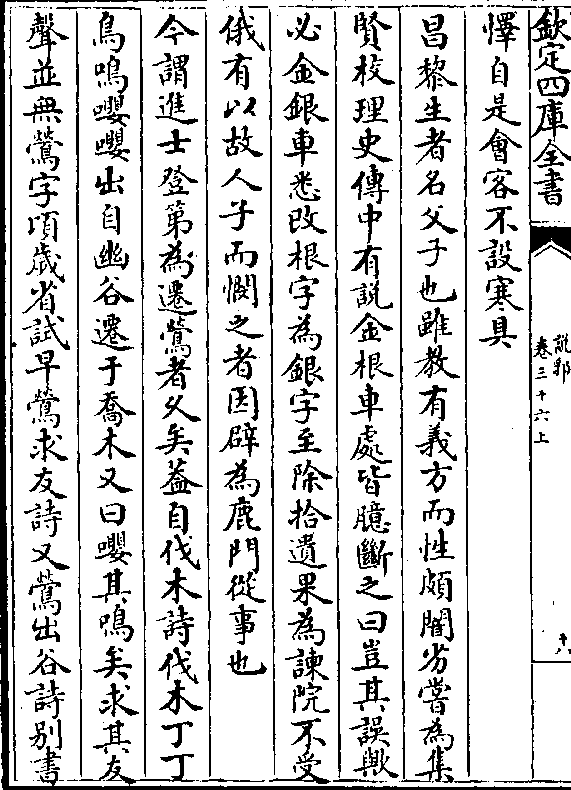 欽定四庫全書
說郛
卷三十六上
十八
懌自是會客不設寒具
昌黎生者名父子也雖教有義方而性頗闇劣嘗為集
賢校理史傳中有說金根車處皆臆斷之曰豈其誤歟
必金銀車悉改根字為銀字至除拾遺果為諫院不受
俄有以故人子而憫之者因辟為鹿門從事也
今謂進士登第為遷鶯者乆矣葢自伐木詩伐木丁丁
鳥鳴嚶嚶出自幽谷遷于喬木又曰嚶其鳴矣求其友
聲並無鶯字頃歲省試早鶯求友詩又鶯出谷詩别書